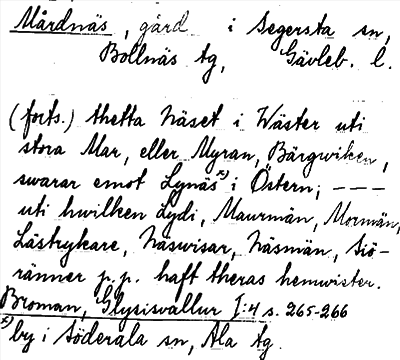 Mårdnäs, gård i Segersta sn,
Bollnäs tg, Gävleb. l.
(forts.) thetta Näset i Wäster uti
stora Mar, eller Myran, Bärgwiken,
swarar emot Lynäs x) i Östern; ---
uti hwilken Lydi, Maurmän, Mormän,
Lästrykare, Näswisar, Näsmän, Siö-
ränner p.p. haft theras hemwister.
Broman, Glysisvallur I:4 s. 265-266
x) by i Söderala sn, Ala tg.